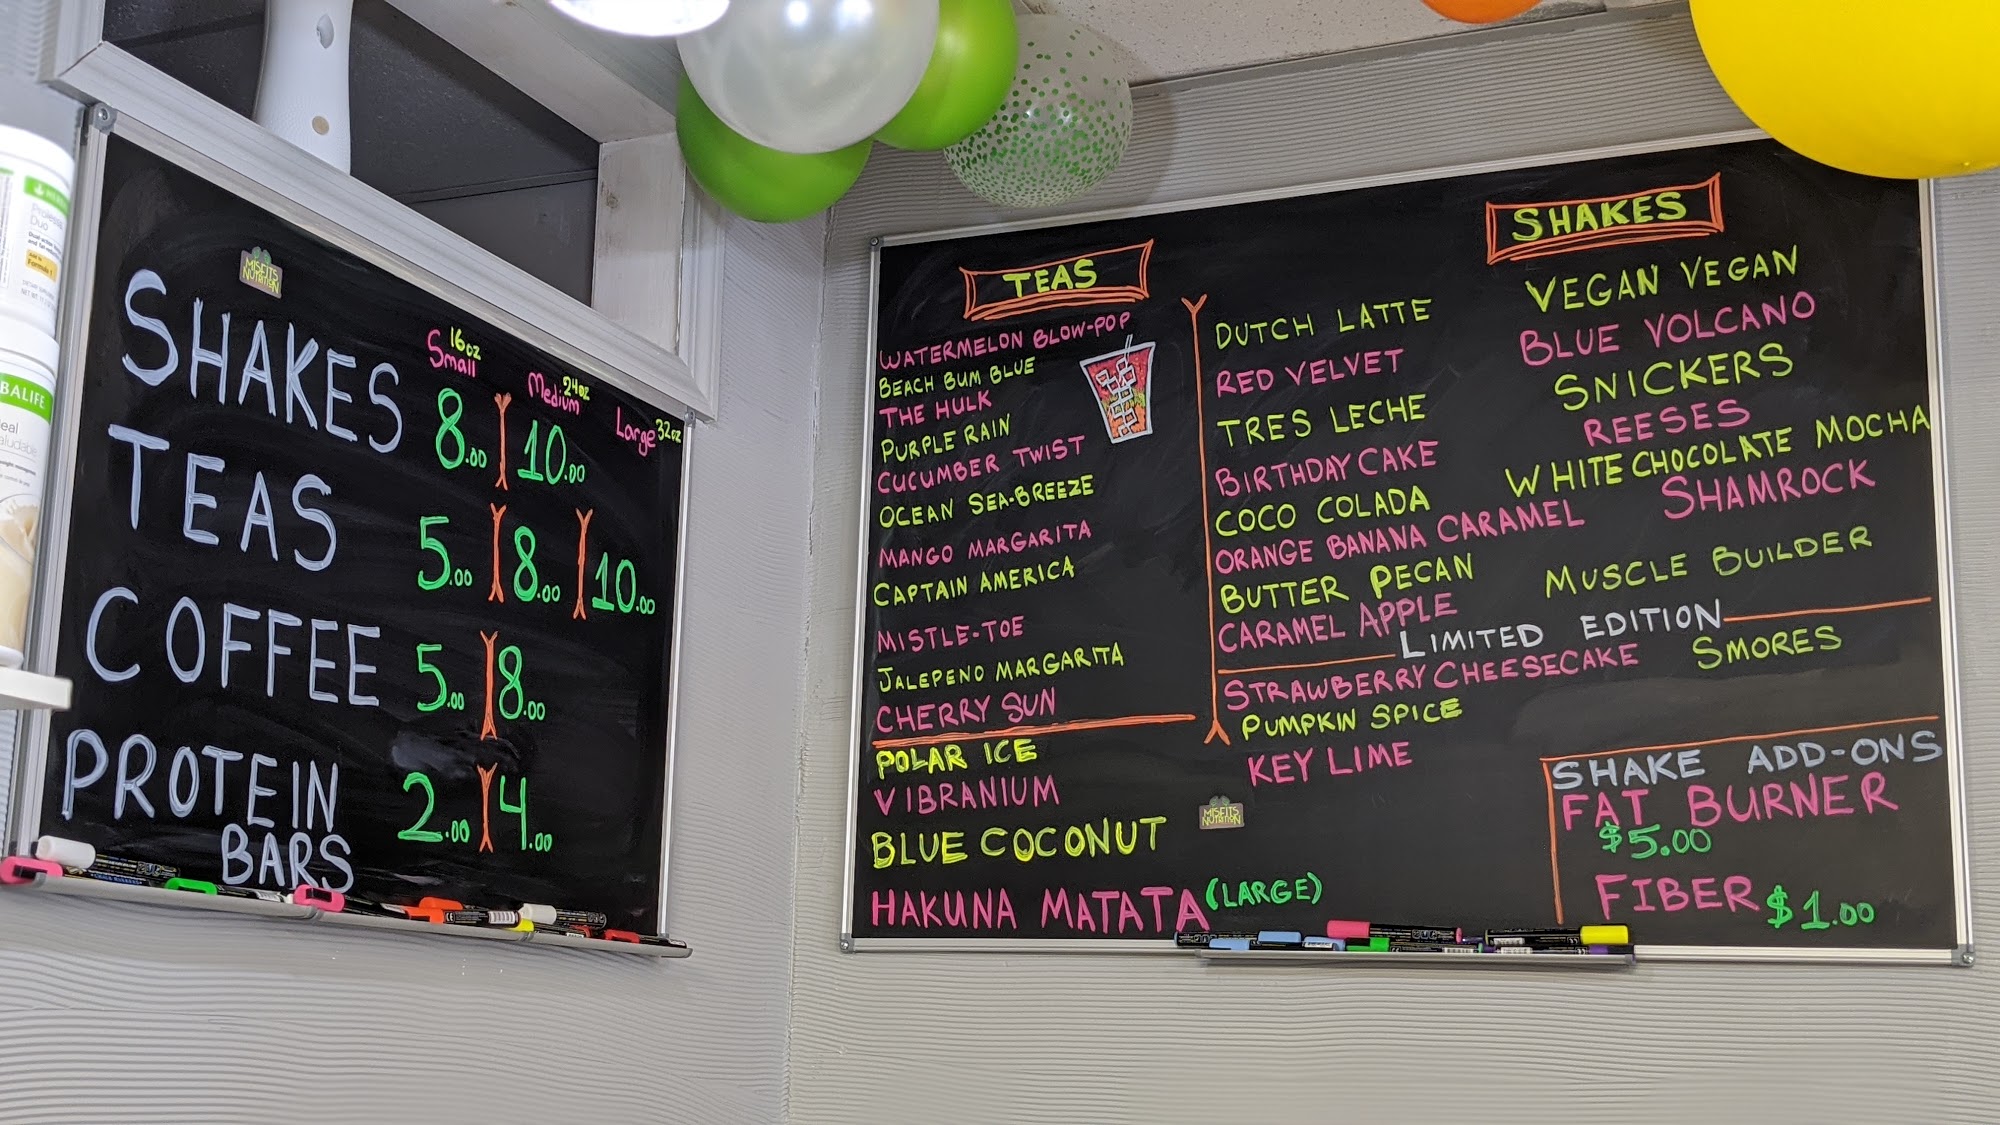 MISFITS
NUTRITION
16oz
Small
24oz
Medium
Large 32oz
SHAKES 8.00 10.00
TEAS 5.00 8.00 10.00
COFFEE 5.00 8.00
PROTEIN BARS 2.00 4.00
TEAS
WATERMELON BLOW-POP
BEACH BUM BLUE
THE HULK
PURPLE RAIN
CUCUMBER TWIST
OCEAN SEA-BREEZE
MANGO MARGARITA
CAPTAIN AMERICA
MISTLE-TOE
JALEPENO MARGARITA
CHERRY SUN
POLAR ICE
VIBRANIUM
BLUE COCONUT
HAKUNA MATATA (LARGE)
SHAKES
DUTCH LATTE
RED VELVET
TRES LECHE
BIRTHDAY CAKE
COCO COLADA
ORANGE BANANA CARAMEL
BUTTER PECAN
CARAMEL APPLE
VEGAN VEGAN
BLUE VOLCANO
SNICKERS
REESES
WHITE CHOCOLATE MOCHA
SHAMROCK
MUSCLE BUILDER
LIMITED EDITION
STRAWBERRY CHEESECAKE
SMORES
PUMPKIN SPICE
KEY LIME
MISFITS
NUTRITION
SHAKE ADD-ONS
FAT BURNER
$5.00
FIBER $1.00
Duo
Formula 1
BALIFE